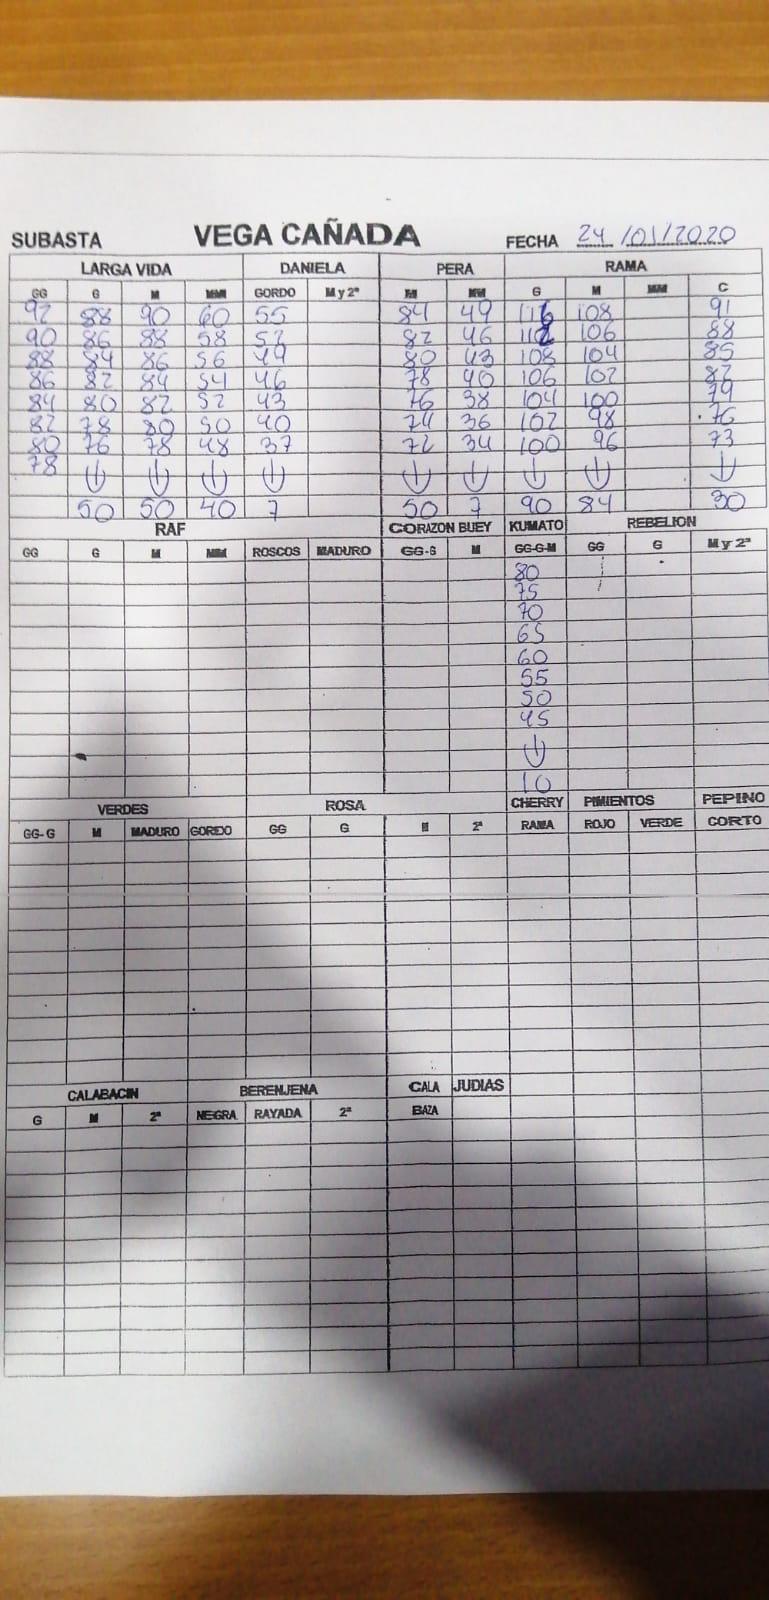 SUBASTA VEGA CAÑADA FECHA 24/01/2020
LARGA VIDA DANIELA PERA RAMA
GG G M MM GORDO M y 2ª M MM G M MM C
92 88 90 60 55 84 49 116 108 91
90 86 88 58 52 82 46 112 106 88
88 84 86 56 49 80 43 108 104 85
86 82 84 54 46 78 40 106 102 82
84 80 82 52 43 76 38 104 100 79
82 78 80 50 40 74 36 102 98 76
80 76 78 48 37 72 34 100 96 73
78 ↓ ↓ ↓ ↓ ↓ ↓ ↓ ↓ ↓
50 50 40 7 50 7 90 84 30
RAF CORAZON BUEY KUMATO REBELION
GG G M MM ROSCOS MADURO GG-G M GG-G-M GG G M y 2ª
80
75
70
65
60
55
50
45
↓
10
VERDES ROSA CHERRY PIMIENTOS PEPINO
GG-G M MADURO GORDO GG G M 2ª RAMA ROJO VERDE CORTO
CALABACIN BERENJENA CALA JUDIAS
G M 2ª NEGRA RAYADA 2ª BAZA